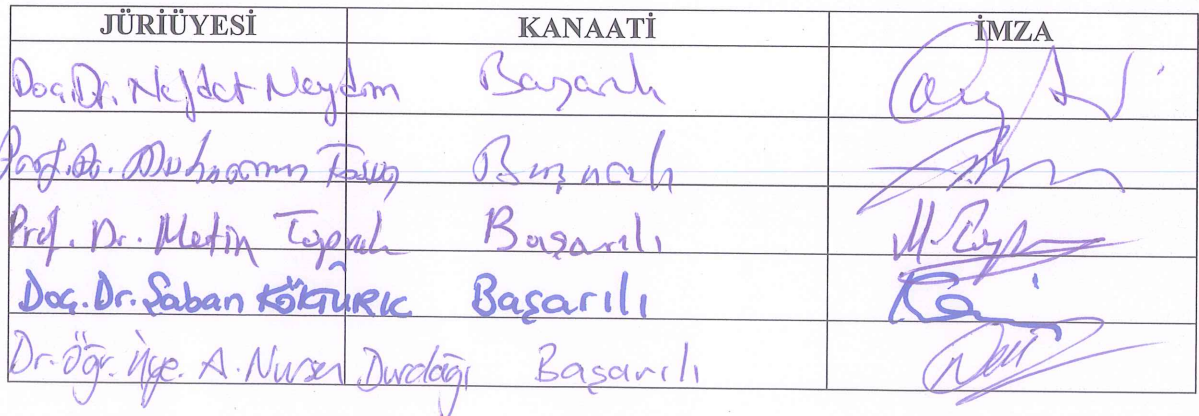 JÜRİÜYESİ KANAATİ İMZA
Doç.Dr. Nejdet Neydim Başarılı
Prof. Dr. Muharrem Tosun Başarılı
Prof. Dr. Metin Toprak Başarılı
Doç. Dr. Şaban KÖKTÜRK Başarılı
Dr. Öğr. Üye. A. Nursen Durdağı Başarılı